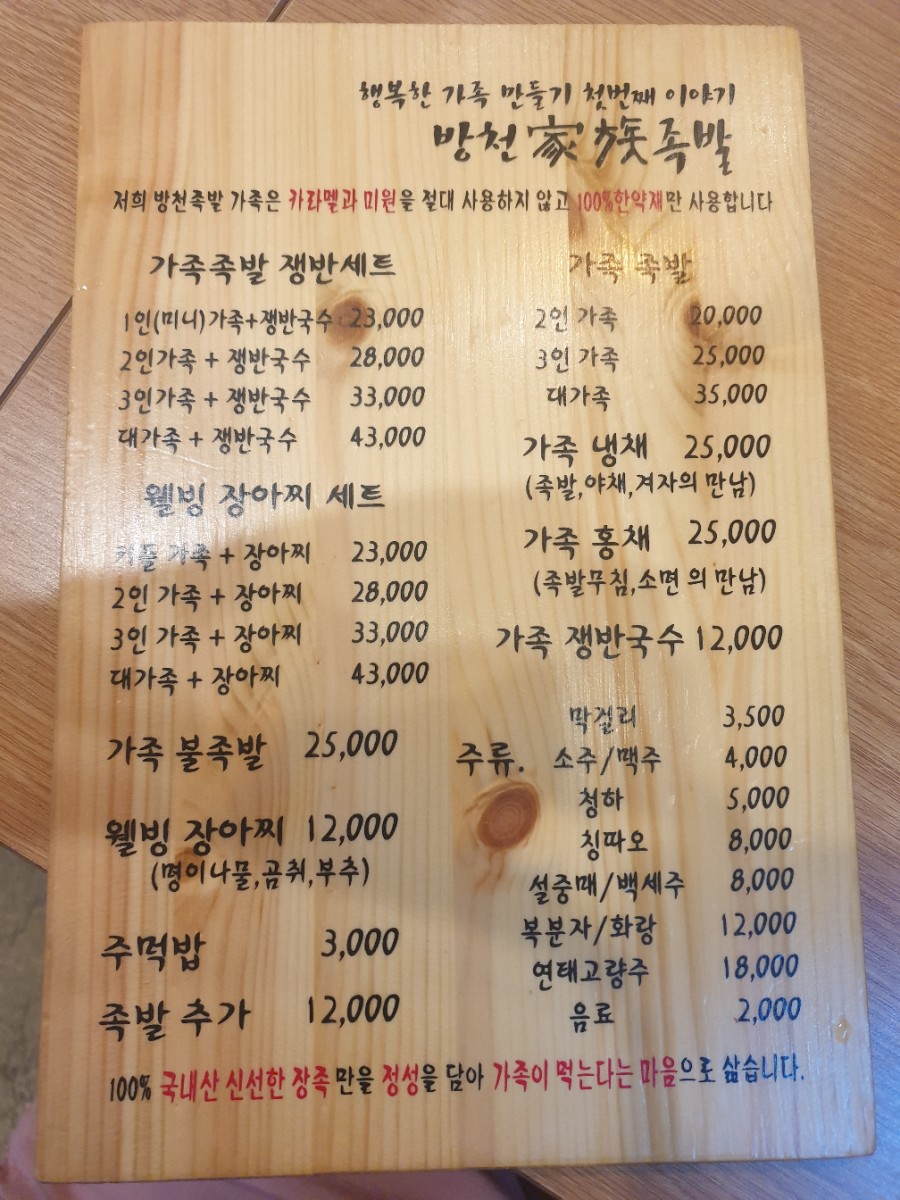 행복한 가족 만들기 첫번째 이야기
방천家族족발
저희 방천족발 가족은 카라멜과 미원을 절대 사용하지 않고 100%한약재만 사용합니다
가족족발 쟁반세트
1인(미니)가족+쟁반국수 23,000
2인가족 + 쟁반국수 28,000
3인가족 + 쟁반국수 33,000
대가족 + 쟁반국수 43,000
웰빙 장아찌 세트
커플 가족 + 장아찌 23,000
2인 가족 + 장아찌 28,000
3인 가족 + 장아찌 33,000
대가족 + 장아찌 43,000
가족 불족발 25,000
웰빙 장아찌 12,000
(명이나물,곰취,부추)
주먹밥 3,000
족발 추가 12,000
가족 족발
2인 가족 20,000
3인 가족 25,000
대가족 35,000
가족 냉채 25,000
(족발,야채,겨자의 만남)
가족 홍채 25,000
(족발무침,소면 의 만남)
가족 쟁반국수 12,000
막걸리 3,500
주류. 소주/맥주 4,000
청하 5,000
칭따오 8,000
설중매/백세주 8,000
복분자/화랑 12,000
연태고량주 18,000
음료 2,000
100% 국내산 신선한 장족만을 정성을 담아 가족이 먹는다는 마음으로 삶습니다.